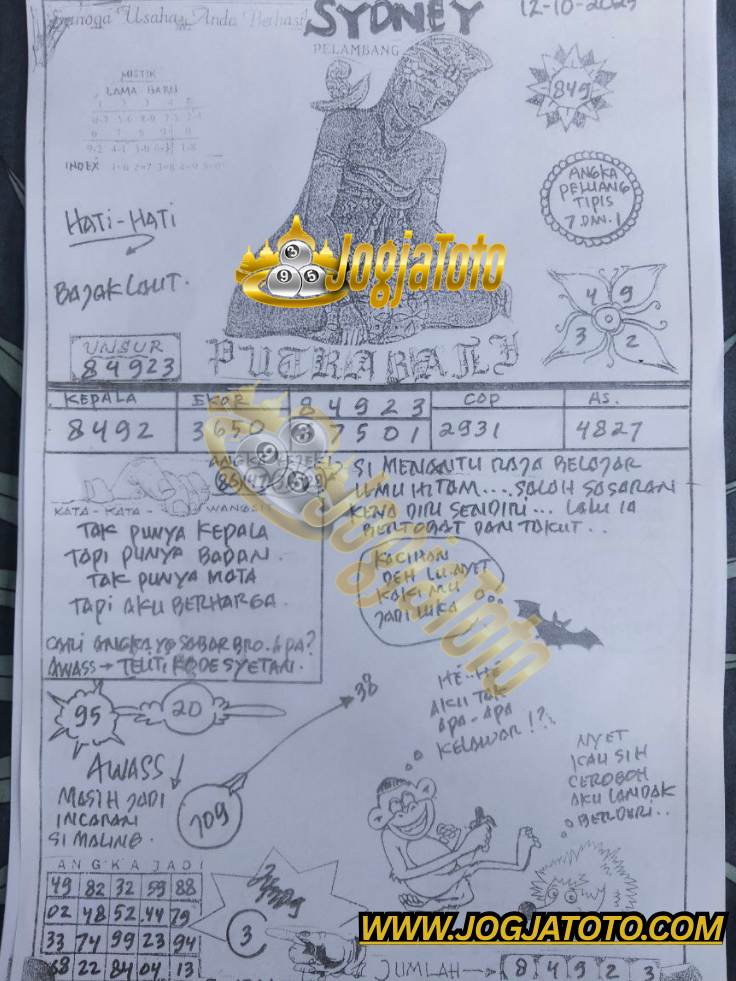 Semoga Usaha Anda Berhasil
SYDNEY
12-10-2025
PELAMBANG
MISTIK
LAMA - BARU
INDEX
849
ANGKA
PELUANG
TIPIS
7 DAN 1
HATI-HATI
BAJAK LAUT.
4 9
3 2
JogjaToto
UNSUR
84923
PUTRA BALI
KEPALA EKOR 84923 COP AS.
8492 3650 7501 2931 4827
KATA - KATA - WANGSIT
TAK PUNYA KEPALA
TAPI PUNYA BADAN
TAK PUNYA MATA
TAPI AKU BERHARGA.
CARI ANGKA YG SABAR BRO. APA?
AWASS → TELITI KODE SYETAN.
SI MENANTU RAJA BELAJAR
ILMU HITAM.... SALAH SASARAN
KENA DIRI SENDIRI... LALU IA
BERTOBAT DAN TAKUT..
KACIHAN
DEH LU.NYET
KAKI MU
JADI LUKA
JogjaToto
HE-HE
AKU TAK
APA-APA
KELAWAR!?
95
20
38
AWASS
MASIH JADI
INCARAN
SI MALING.
709
NYET
KAU SIH
CEROBOH
AKU LANDAK
BERDURI..
ANGKA JADI
49 82 32 59 88
02 48 52 44 79
33 74 99 23 94
68 22 84 04 13
3
WWW.JOGJATOTO.COM
JUMLAH → 8 4 9 2 3